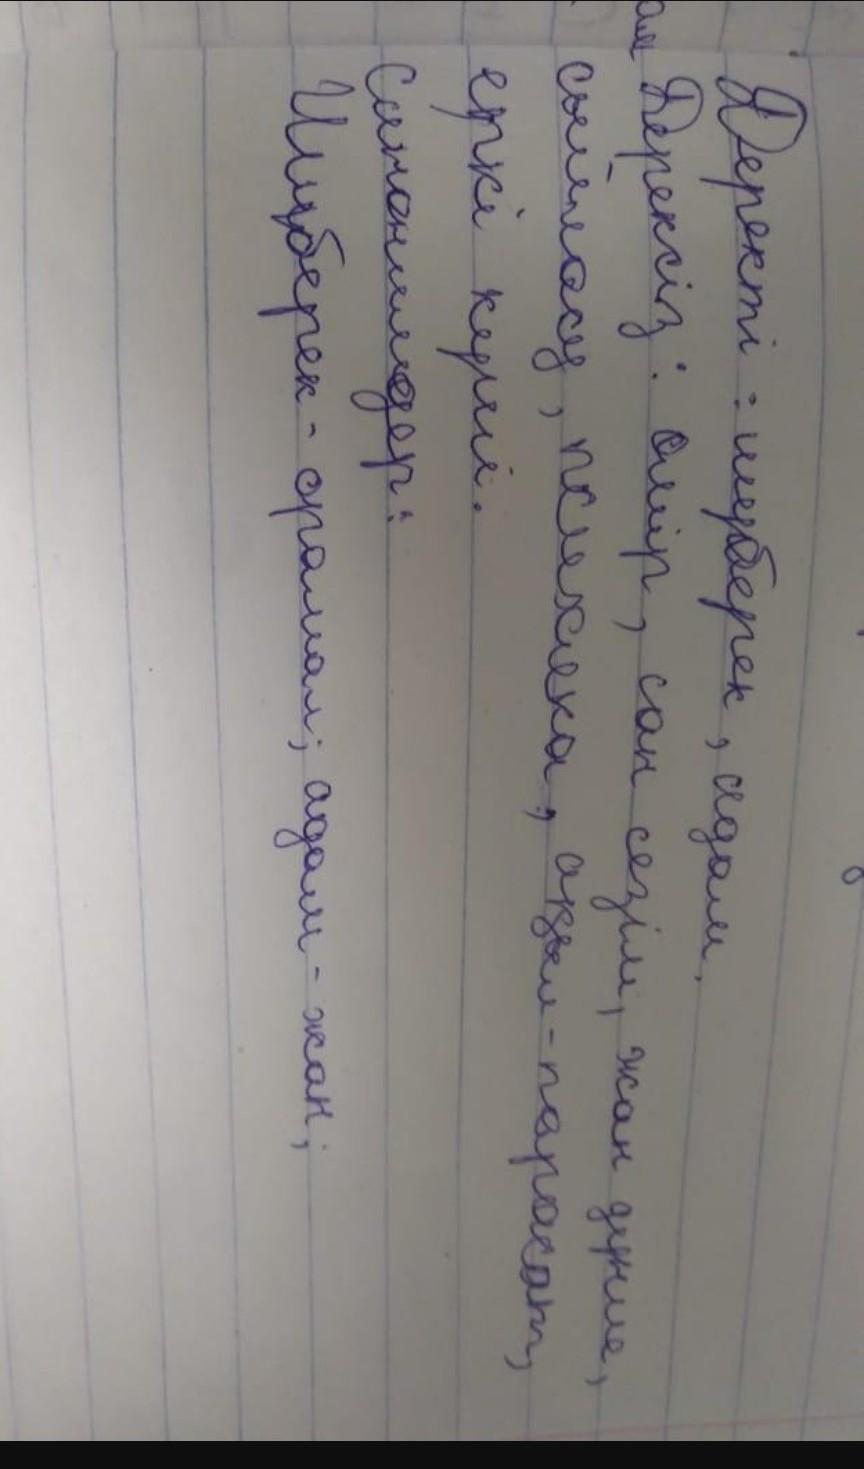 Деректі: шүберек, адам.
Дерексіз: өмір, сан сезім, жан дүние,
сыйласу, психика, ақыл-парасат,
ерікі күлкі.
Синонимдер:
Шүберек - орамал; адам - жан;